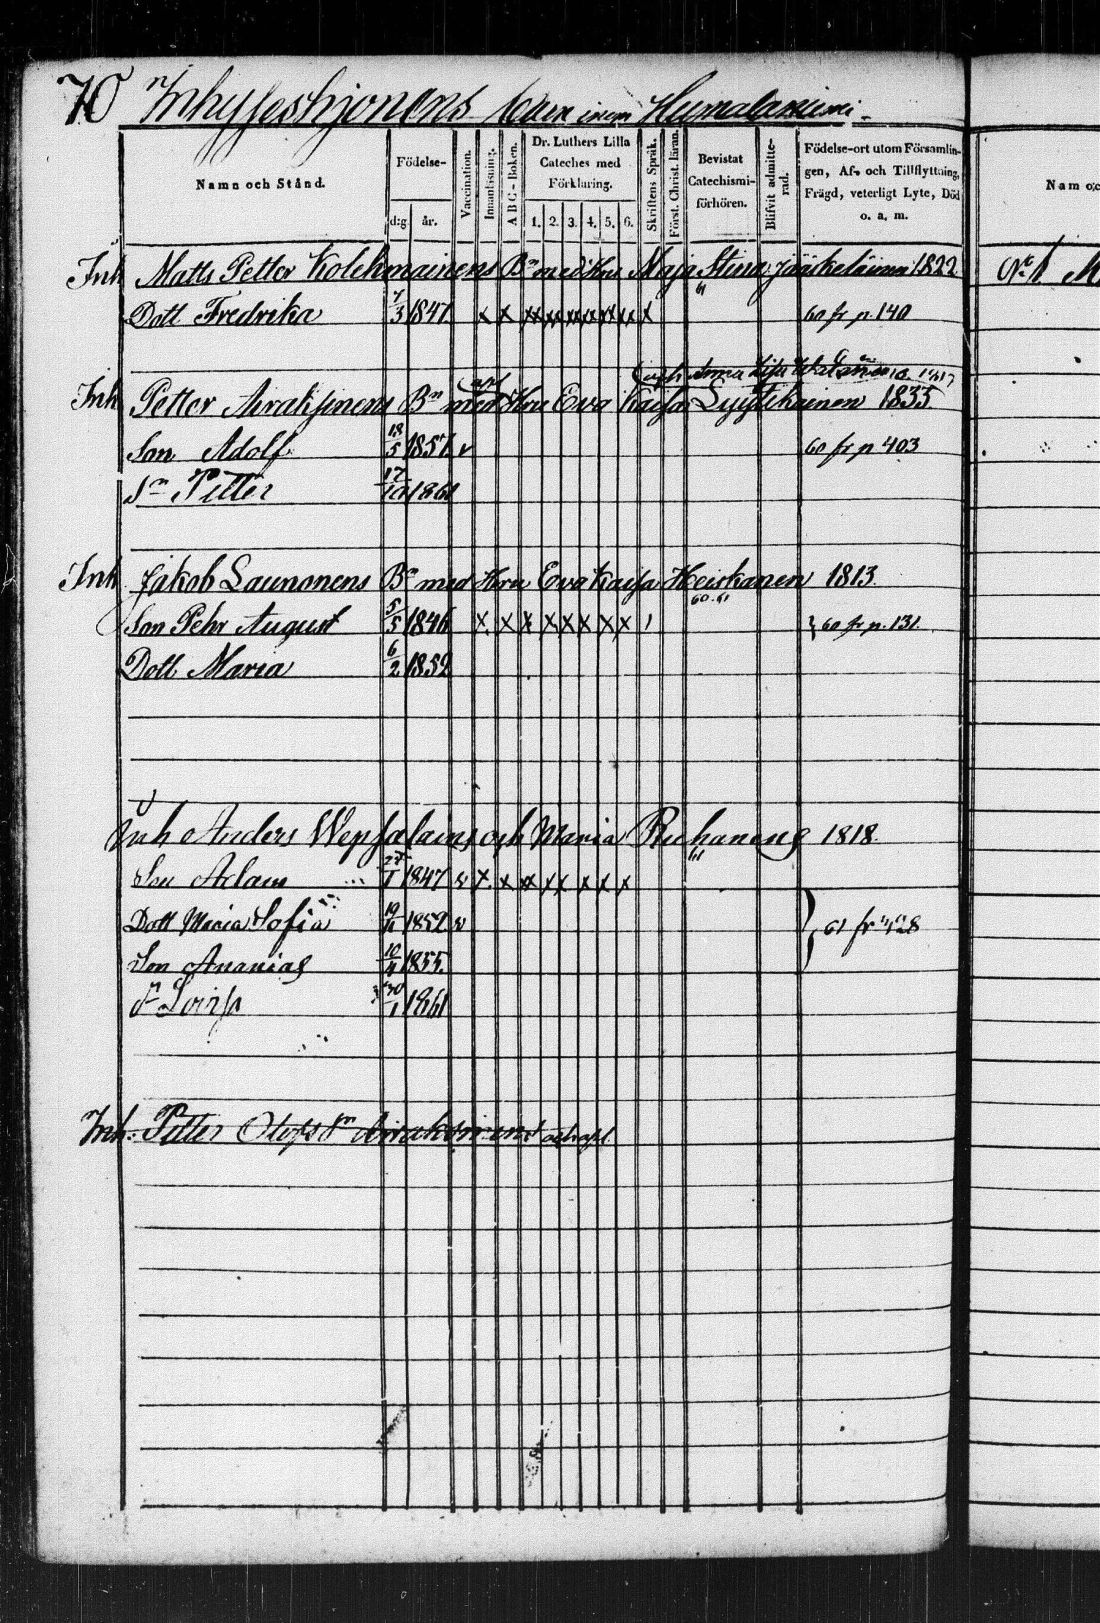 70 Inhyseshjonens Barn inom Humalaniemi.
Namn och Stånd.
Födelse-
d:g. år.
Vaccination.
Innanläsning.
A B C - Boken.
Dr. Luthers Lilla Cateches med Förklaring.
1. 2. 3. 4. 5. 6.
Skriftens Språk.
Först. Christ. läran.
Bevistat Catechismi-förhören.
Blifvit admitte-rad.
Födelse-ort utom Församlin-
gen, Af- och Tillflyttning,
Frägd, veterligt Lyte, Död
o. a. m.
Nam oc
Inh Matts Petter Kolehmainens Bn med Hru Maja Stina Jääskeläinen 1822
Dott Fredrika 7/3 1847 x x x x x x x x x 61 60 fr p. 140
och Anna Lisa
Inh Petter Airaksinens Bn med Hru Eva Kaisa Lyytikainen 1835
Son Adolf 18/5 1857 v 60 fr p 403
Sn Petter 17/10 1861
Inh Jakob Launonens Bn med Hru Eva Kaisa Heiskanen 1813
Son Pehr August 5/5 1846 x x x x x x x x 60-61 60 fr p. 131
Dott Maria 6/2 1852
Inh Anders Wepsäläins och Maria Puhanens 1818
Son Adam 27/1 1847 v x x x x x x x x 61
Dott Maria Sofia 19/11 1852 v 61 fr 428
Son Ananias 10/4 1855
Lovisa 30/1 1861
Inh: Petter Olofs Sn Airaksinens